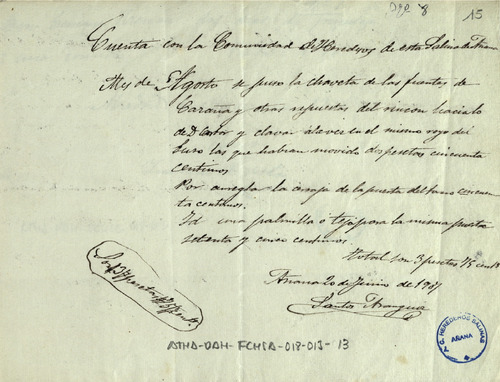 DOC 8
15
Cuenta con la Comunidad de Herederos de esta Salina de Añana
Mes de Agosto se puso la chaveta de las fuentes de
Caraña y otras repuestas del rincon hacialo
de D. Castor y clavar álaves en el mismo royo del
las que habian movido dos pesetas cincuenta
centimos
Por arreglar la cerraja de la puerta del cincuen
ta centimos.
Id una palmilla o teja para la misma puerta
setenta y cinco centimos.
Total son 3 pesetas 75 cents
Añana 20 de Junio de 1901
Santos Arangua
Son 3 pesetas 75 cents.
ATHA-DAH-FCHSA-018-013-13
C. G. HEREDEROS SALINAS
AÑANA